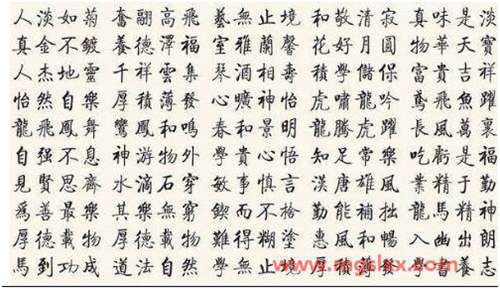 人淡如菊 奮翮高飛 藝無止境 和敬清寂 真味是淡
真金不鍍 養德澤福 室雅蘭馨 花好月圓 物華天寶
人杰地靈 千祥雲集 琴酒相壽 積學儲保 富貴吉祥
怡然自樂 厚積薄發 心曠神怡 虎嘯龍吟 鳶飛魚躍
龍飛鳳舞 鸞鳳和鳴 春和景明 龍騰虎躍 長風萬裏
自强不息 神游物外 學貴心悟 知足常樂 吃虧是福
見賢思齊 水滴石穿 敏事慎言 漢唐雄風 業精于勤
爲善最樂 其樂無窮 鍥而不捨 勤能補拙 龍馬精神
厚德載物 難得糊塗 惠風和暢 入幽出朗
馬到功成 道法自然 學無止境